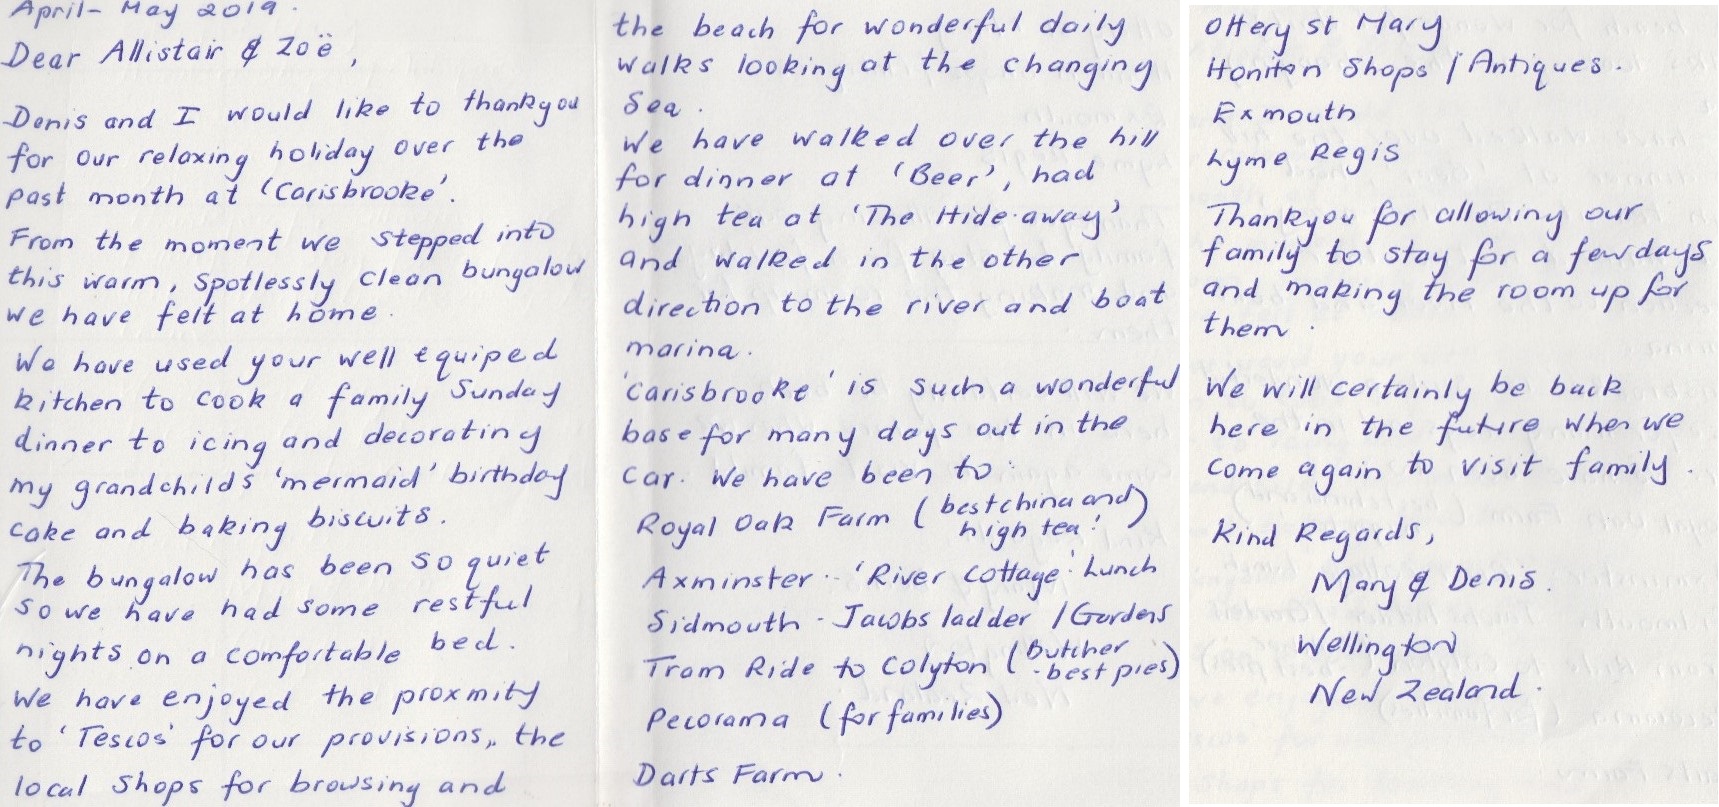 April- May 2019.
Dear Allistair & Zoë,
Denis and I would like to thankyou
for our relaxing holiday over the
past month at 'Carisbrooke'.
From the moment we stepped into
this warm, spotlessly clean bungalow
we have felt at home.
We have used your well equiped
kitchen to cook a family Sunday
dinner to icing and decorating
my grandchilds 'mermaid' birthday
cake and baking biscuits.
The bungalow has been so quiet
so we have had some restful
nights on a comfortable bed.
We have enjoyed the proxmity
to 'Tescos' for our provisions, the
local shops for browsing and
the beach for wonderful daily
walks looking at the changing
sea.
We have walked over the hill
for dinner at 'Beer', had
high tea at 'The Hide-away'
and walked in the other
direction to the river and boat
marina.
'Carisbrooke' is such a wonderful
base for many days out in the
car. We have been to:
Royal Oak Farm (best china and
high tea!)
Axminster - 'River Cottage' Lunch
Sidmouth - Jacobs ladder / Gardens
Tram Ride to Colyton (Butcher
- best pies)
Pecorama (for families)
Darts Farm.
Ottery St Mary
Honiton Shops / Antiques.
Exmouth
Lyme Regis
Thankyou for allowing our
family to stay for a few days
and making the room up for
them.
We will certainly be back
here in the future when we
come again to visit family.
Kind Regards,
Mary & Denis.
Wellington
New Zealand.